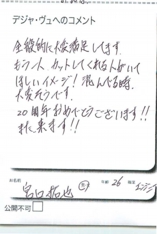 デジャ・ヴュへのコメント
全般的に大変満足してます。
もう1人、カットしてくれる人がいて
ほしいイメージ！混んでる時、
大変そうです。
20周年おめでとうございます!!
また来ます!!
お名前
宮口拓也
年齢 26
職業
公開不可